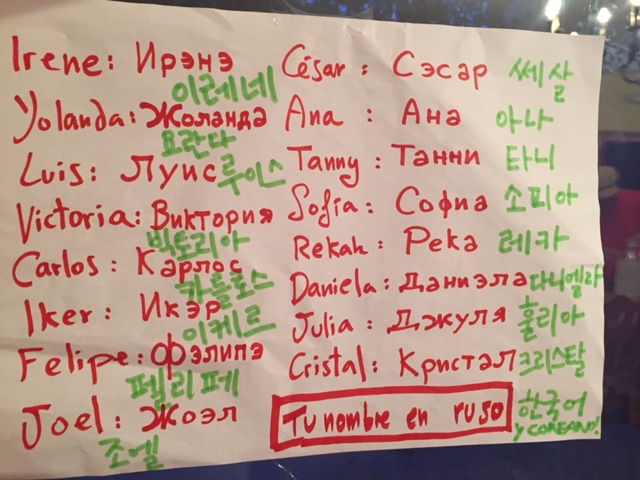 Irene: Ирэнэ
이레네
Yolanda: Жоланда
요란다
Luis: Луис 루이스
Victoria: Виктория
빅토리아
Carlos: Карлос
카를로스
Iker: Икэр
이케르
Felipe: Фэлипэ
펠리페
Joel: Жоэл
조엘
César: Сэсар 쎄살
Ana: Ана 아나
Tanny: Танни 타니
Sofía: Софиа 소피아
Rekah: Река 레카
Daniela: Даниэла 다니엘라
Julia: Джуля 훌리아
Cristal: Кристал 크리스탈
Tu nombre en ruso 한국어
y COREANO!